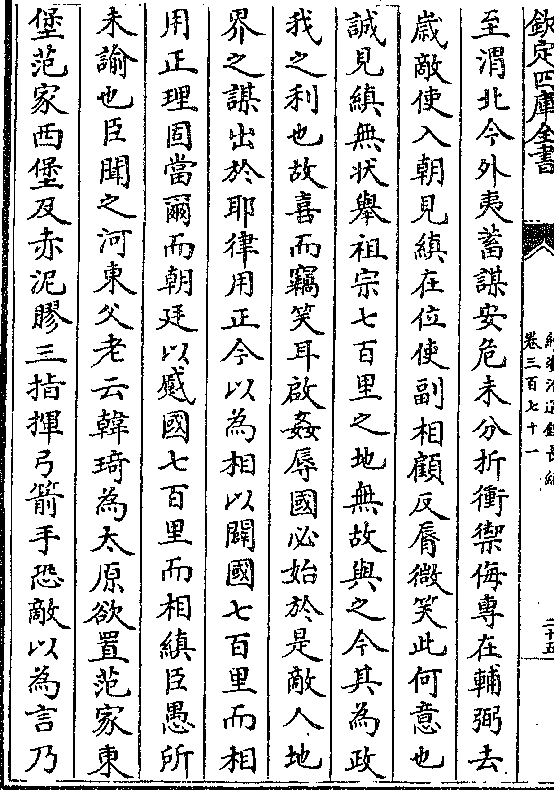 欽定四庫全書
卷三百七十一
二十五
至渭北今外夷蓄謀安危未分折衝禦侮專在輔弼去
歲敵使入朝見縝在位使副相顧反脣微笑此何意也
誠見縝無狀舉祖宗七百里之地無故與之今其為政
我之利也故喜而竊笑耳啟姦辱國必始於是敵人地
界之謀出於耶律用正今以為相以闢國七百里而相
用正理固當爾而朝廷以慼國七百里而相縝臣愚所
未諭也臣聞之河東父老云韓琦為太原欲置范家東
堡范家西堡及赤泥膠三指揮弓箭手恐敵以為言乃